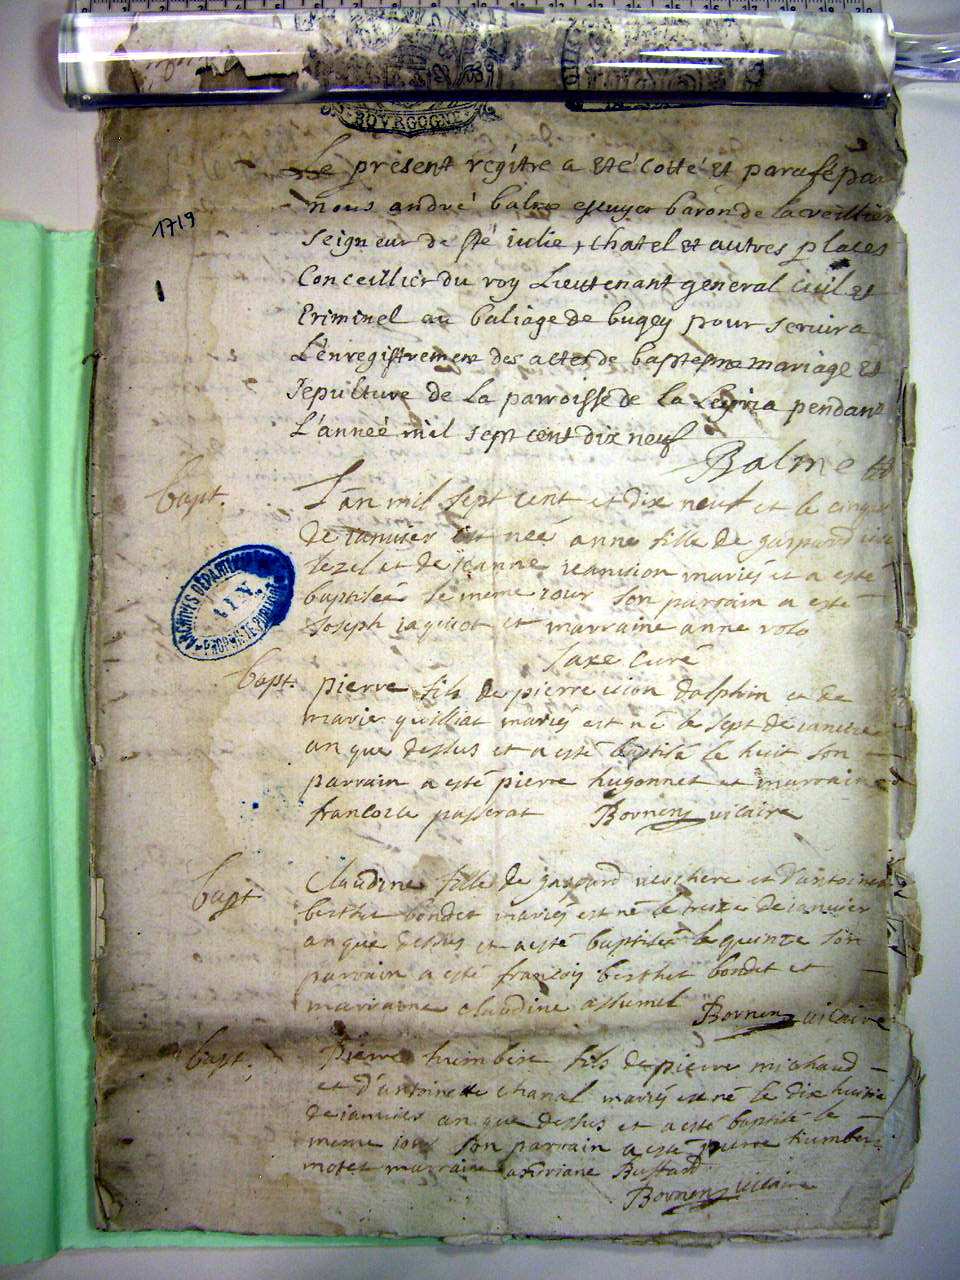 BOVRGOGNE
Le présent régitre a été cotté et parafé par
nous andré balme escuyer baron de
1719
Seigneur de Ste julie, chatel et autres places
Conceillier du roy Lieuttenant general civil et
1
Criminel au baliage de bugey pour servir a
L'enregistrement des actes de baptesme mariage et
sepulture de la parroisse de la pendant
L'année mil sept cent dix neuf
Balme
bapt.
L'an mil sept cent et dix neuf et le cinq
de ianvier est née anne fille de gaspard
et de ieanne mariés et a esté
baptisée le meme iour son parrain a esté
Joseph iaquiot et marraine anne
curé
ARCHIVES DÉPARTEMENTALES
AIN
PROPRIÉTÉ PUBLIQUE
bapt.
pierre fils de pierre dalphin et de
marie quilliat mariés est né le sept de ianvier
an que dessus et a esté baptisé le huit son
parrain a esté pierre hugonnet et marraine
francoise passerat Bornen vicaire
bapt
Claudine fille de gaspard et d'antoinette
berthet bondet mariés est né le treize de ianvier
an que dessus et a esté baptisée le quinze son
parrain a esté francois berthet bondet et
marraine claudine Bornen vicaire
bapt.
Pierre humbert fils de pierre michaud
et d'antoinette chanal mariés est né le dix huitie
de ianvier an que dessus et a esté baptisé le
meme iour son parrain a esté pierre humbert
marraine Buffard
Bornen vicaire